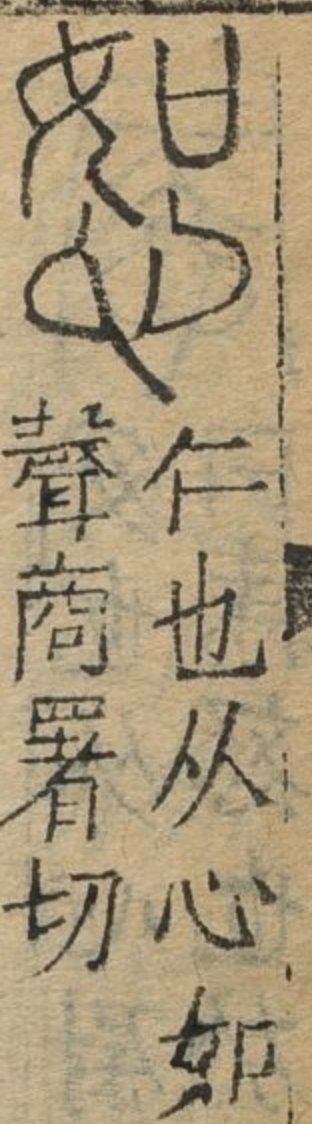 恕
仁也从心如
聲商署切